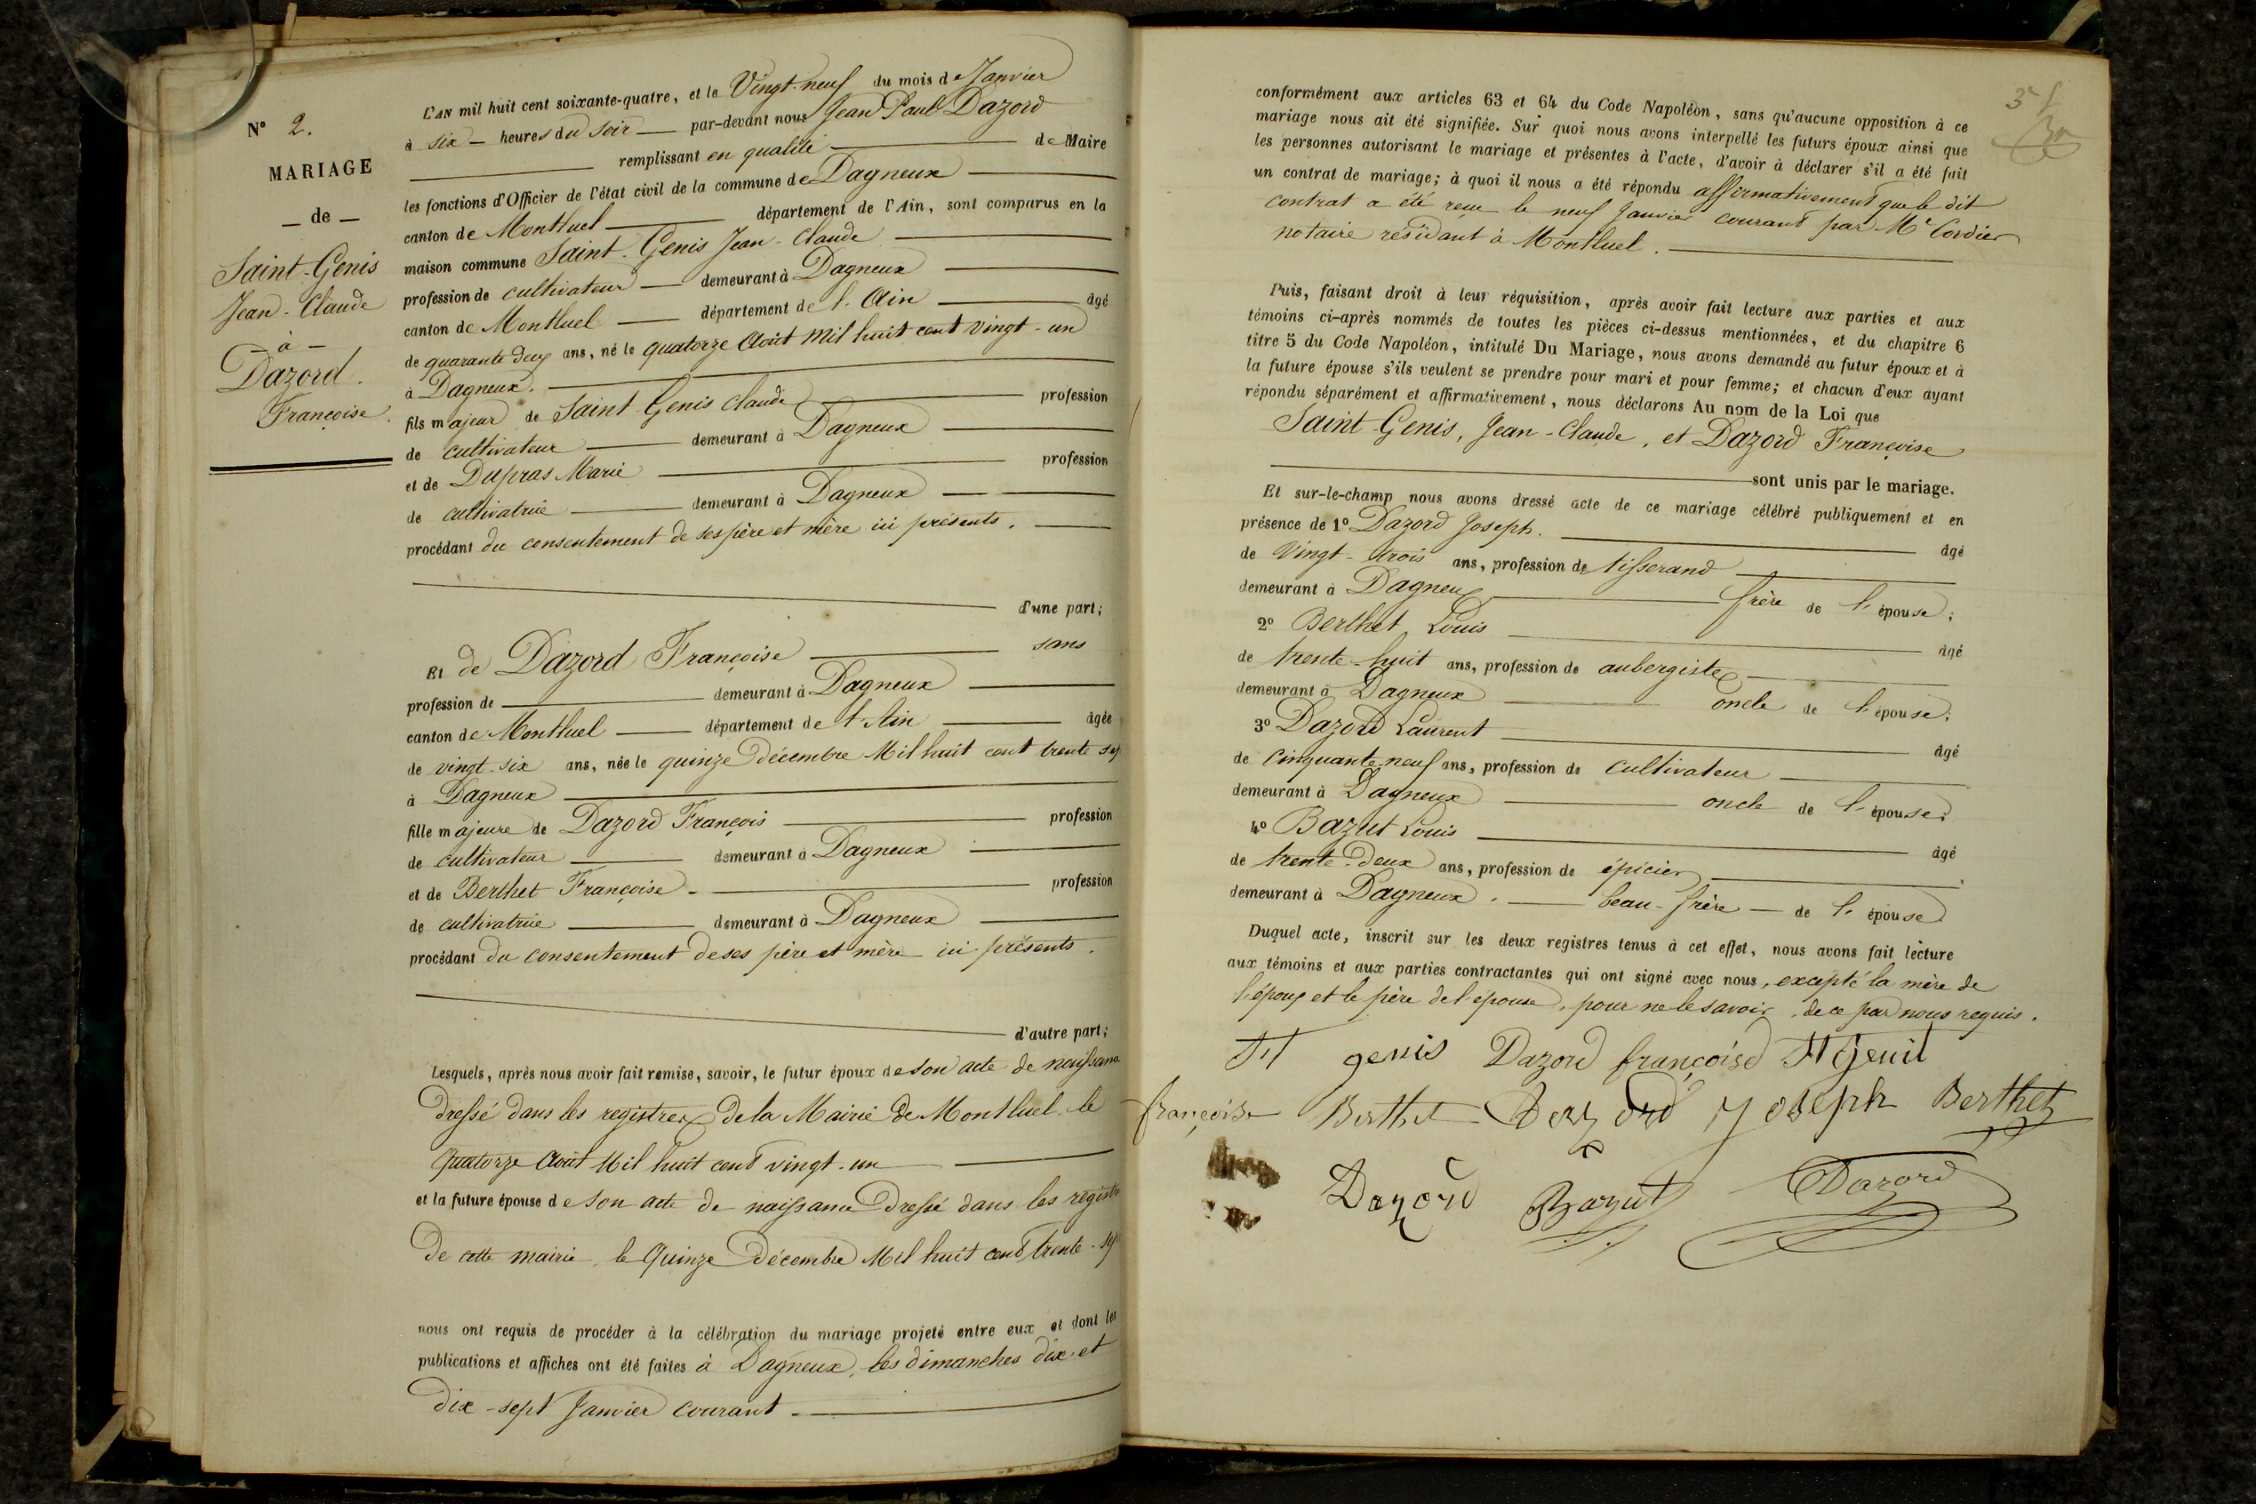 N° 2.
MARIAGE
— de —
Saint-Genis
Jean-Claude
— à —
Dazord.
Françoise.
L'AN mil huit cent soixante-quatre, et le Vingt-neuf du mois de Janvier
à six — heures du soir — par-devant nous Jean Paul Dazord
remplissant en qualité — de Maire
les fonctions d'Officier de l'état civil de la commune de Dagneux —
canton de Montluel — département de l'Ain, sont comparus en la
maison commune Saint-Genis Jean-Claude —
profession de cultivateur — demeurant à Dagneux —
canton de Montluel — département de l'Ain — âgé
de quarante deux ans, né le quatorze Août mil huit cent vingt-un
à Dagneux. —
fils majeur de Saint Genis Claude — profession
de cultivateur — demeurant à Dagneux —
et de Dupras Marie — profession
de cultivatrice — demeurant à Dagneux —
procédant du consentement de ses père et mère ici présents. —
d'une part;
Et de Dazord Françoise — sans
profession de — demeurant à Dagneux —
canton de Montluel — département de l'Ain — âgée
de vingt-six ans, née le quinze décembre Mil huit cent trente sep
à Dagneux —
fille majeure de Dazord François — profession
de cultivateur — demeurant à Dagneux —
et de Berthet Françoise. — profession
de cultivatrice — demeurant à Dagneux —
procédant du consentement de ses père et mère ici présents.
d'autre part;
Lesquels, après nous avoir fait remise, savoir, le futur époux de son acte de naissance
dressé dans les registres de la Mairie de Montluel le
quatorze Août Mil huit cent vingt-un —
et la future épouse de son acte de naissance dressé dans les registr
de cette mairie, le Quinze décembre Mil huit cent trente-sep
nous ont requis de procéder à la célébration du mariage projeté entre eux et dont les
publications et affiches ont été faites à Dagneux, les dimanches dix et
dix-sept Janvier courant. —
3e f
conformément aux articles 63 et 64 du Code Napoléon, sans qu'aucune opposition à ce
mariage nous ait été signifiée. Sur quoi nous avons interpellé les futurs époux ainsi que
les personnes autorisant le mariage et présentes à l'acte, d'avoir à déclarer s'il a été fait
un contrat de mariage; à quoi il nous a été répondu affirmativement que le dit
contrat a été reçu le neuf Janvier courant par Me Cordier
notaire résidant à Montluel. —
Puis, faisant droit à leur réquisition, après avoir fait lecture aux parties et aux
témoins ci-après nommés de toutes les pièces ci-dessus mentionnées, et du chapitre 6
titre 5 du Code Napoléon, intitulé Du Mariage, nous avons demandé au futur époux et à
la future épouse s'ils veulent se prendre pour mari et pour femme; et chacun d'eux ayant
répondu séparément et affirmativement, nous déclarons Au nom de la Loi que
Saint-Genis, Jean-Claude, et Dazord Françoise
— sont unis par le mariage.
Et sur-le-champ nous avons dressé acte de ce mariage célébré publiquement et en
présence de 1° Dazord Joseph. — âgé
de Vingt-trois ans, profession de tisserand —
demeurant à Dagneux — frère de l'épouse;
2° Berthet Louis — âgé
de trente-huit ans, profession de aubergiste —
demeurant à Dagneux — oncle de l'épouse;
3° Dazord Laurent — âgé
de cinquante-neuf ans, profession de cultivateur —
demeurant à Dagneux — oncle de l'épouse;
4° Bazut Louis — âgé
de trente-deux ans, profession de épicier —
demeurant à Dagneux. — beau-frère — de l'épouse
Duquel acte, inscrit sur les deux registres tenus à cet effet, nous avons fait lecture
aux témoins et aux parties contractantes qui ont signé avec nous, excepté la mère de
l'époux et le père de l'épouse, pour ne le savoir, de ce par nous requis.
St genis Dazord françoise St Genit
françoise Berthet Dazord Joseph Berthet
Dazord Bazut Dazord